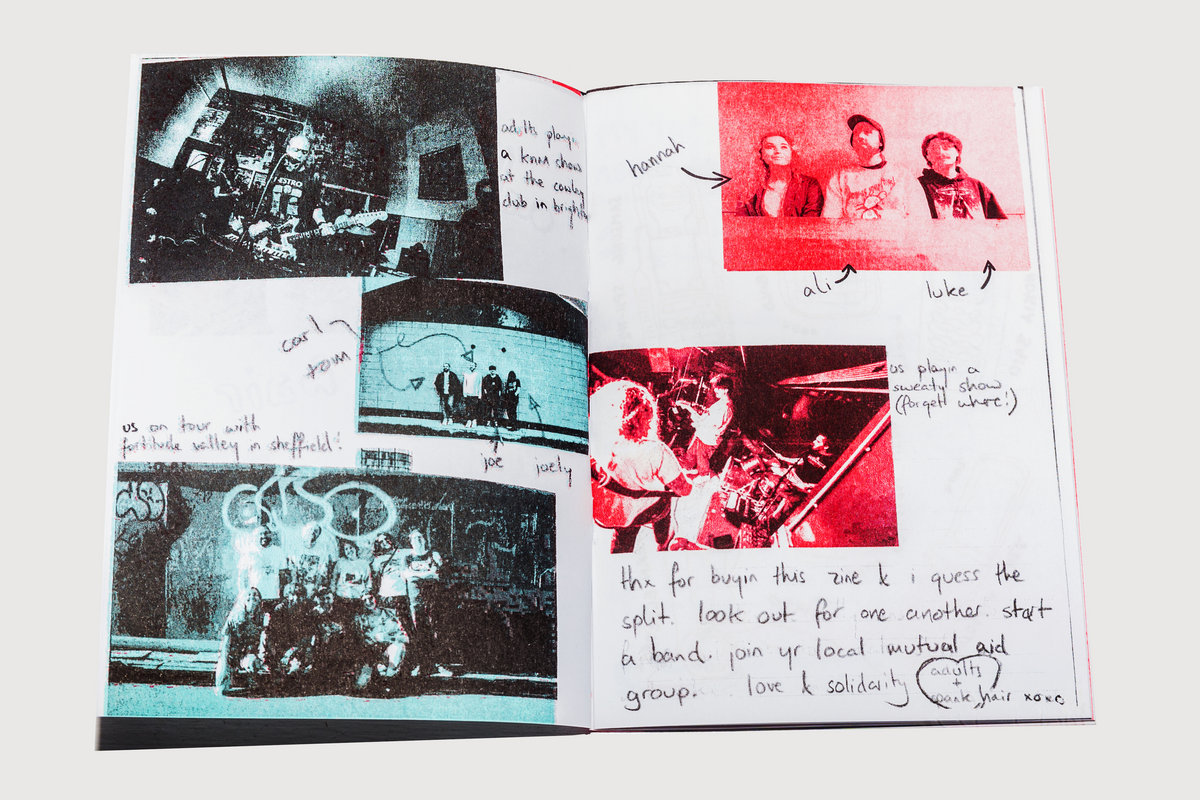 adults playin
a knm show
at the cowley
club in brighton
NESTRO
carly
tom
us on tour with
fortitude valley in sheffield!
joe
joely
hannah
ali
luke
us playin a
sweaty show
(forget where!)
thx for buyin this zine & i guess the
split. look out for one another. start
a band. join yr local mutual aid
group. love & solidarity
adults
+
hair xoxo